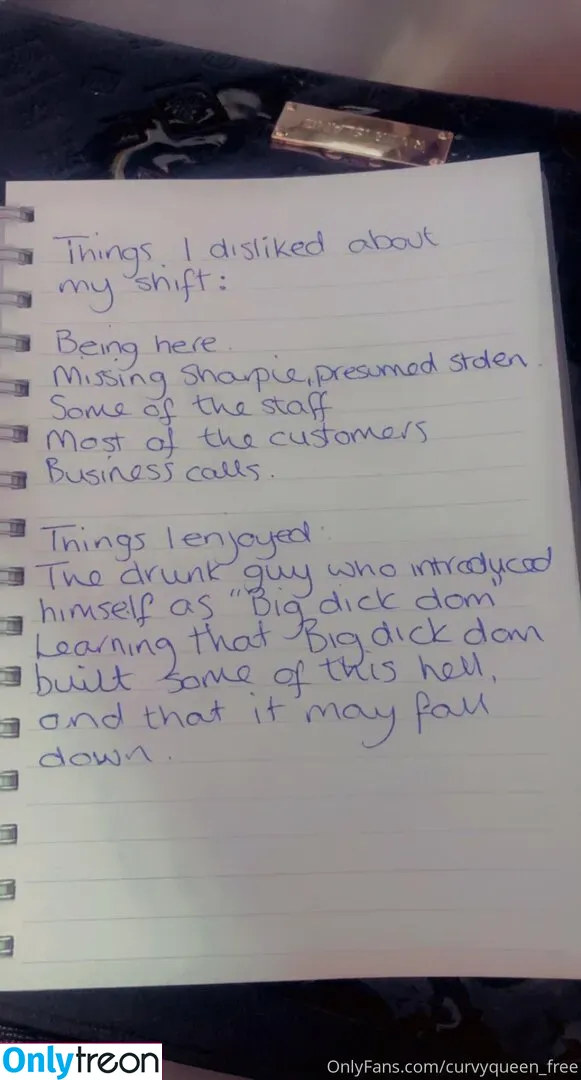 Things I disliked about
my shift:
Being here.
Missing Sharpie, presumed stolen.
Some of the staff
Most of the customers
Business calls.
Things I enjoyed:
The drunk guy who introduced
himself as "Big dick dom"
Learning that Big dick dom
built some of this hell,
and that it may fall
down.
Onlytreon
OnlyFans.com/curvyqueen_free